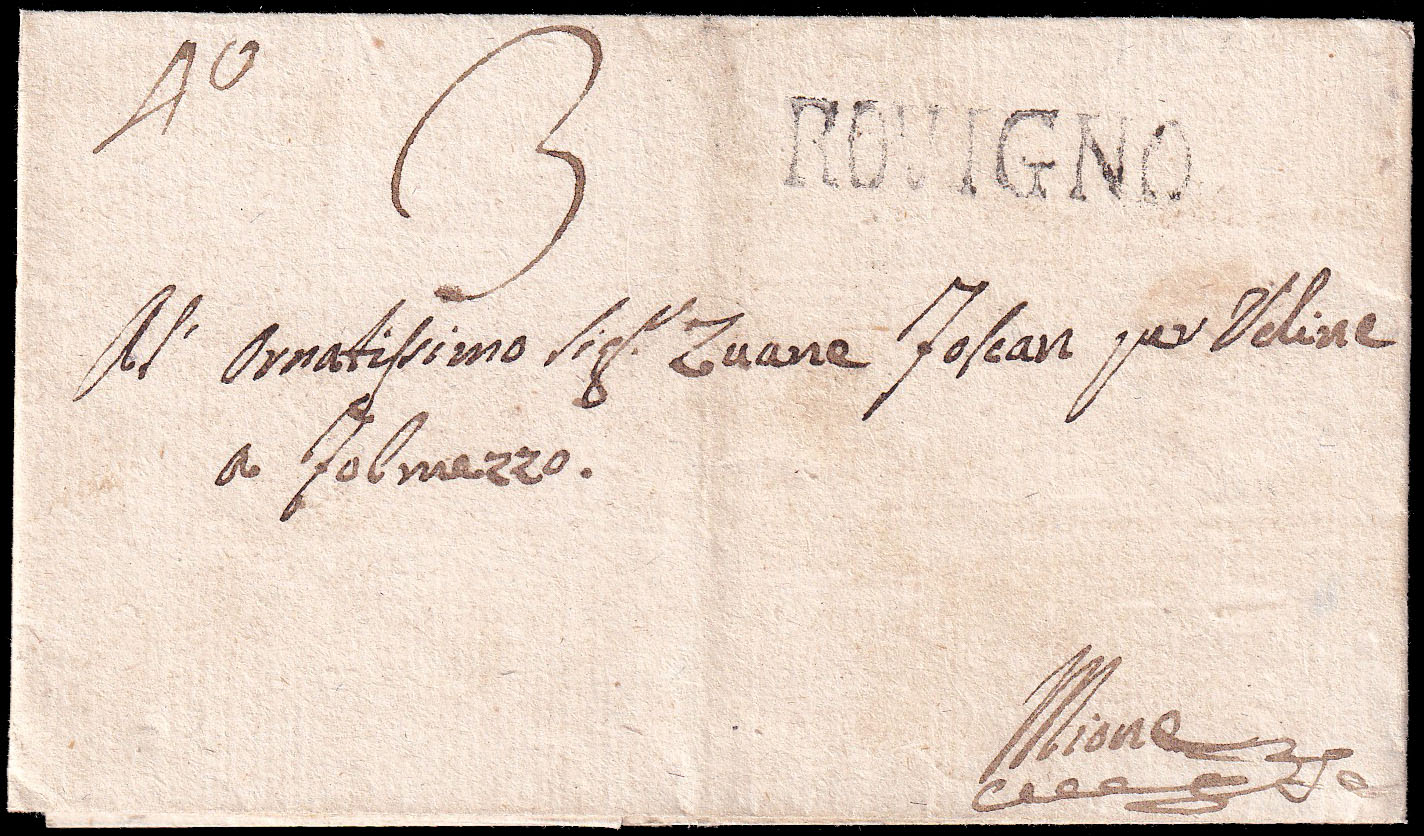 40
3
ROVIGNO
Al' Ornatissimo Sig.r Zuane Toscan per Udine
a Tolmezzo.
Mione